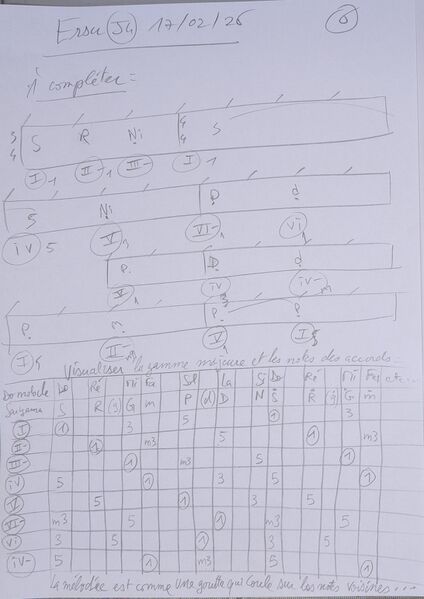 Ersu J4 17/02/26 6
à compléter =
3 4 S R Ni 4 4 S
I 1 II- 1 III- I 1
S Ni P d
iv 5 V 1 VI- 1 vi 1
P D d
V 1 iv iv-
P m P P
I 5 II- V 1 I 5
Visualiser la gamme majeure et les notes des accords =
Do mobile Do Ré Mi Fa Sol La Si Do Ré Mi Fa etc...
Sargama S R (g) G m P (d) D N Ṡ Ṙ (g) Ġ ṁ
I 1 3 5 1 3
II- 1 m3 5 1 m3
III- 1 m3 5 1
iv 5 1 3 5 1
V 5 1 3 5
VI- m3 5 1 m3 5
vi 3 5 1 3 5
iv- 5 1 m3 5 1
La mélodie est comme une goutte qui coule sur les notes voisines...